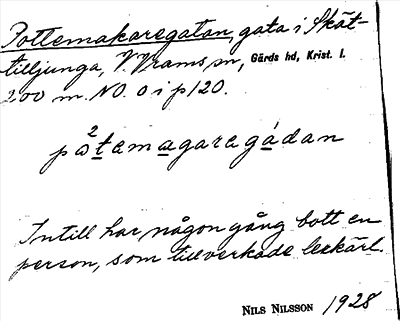 Pottemakaregatan, gata i Skät-
tilljunga, V. Vrams sn, Gärds hd, Krist. l.
200 m. NO. o i p 120.
pɷ²temagaregádan
Intill har någon gång bott en
person, som tillverkade lerkärl.
NILS NILSSON 1928